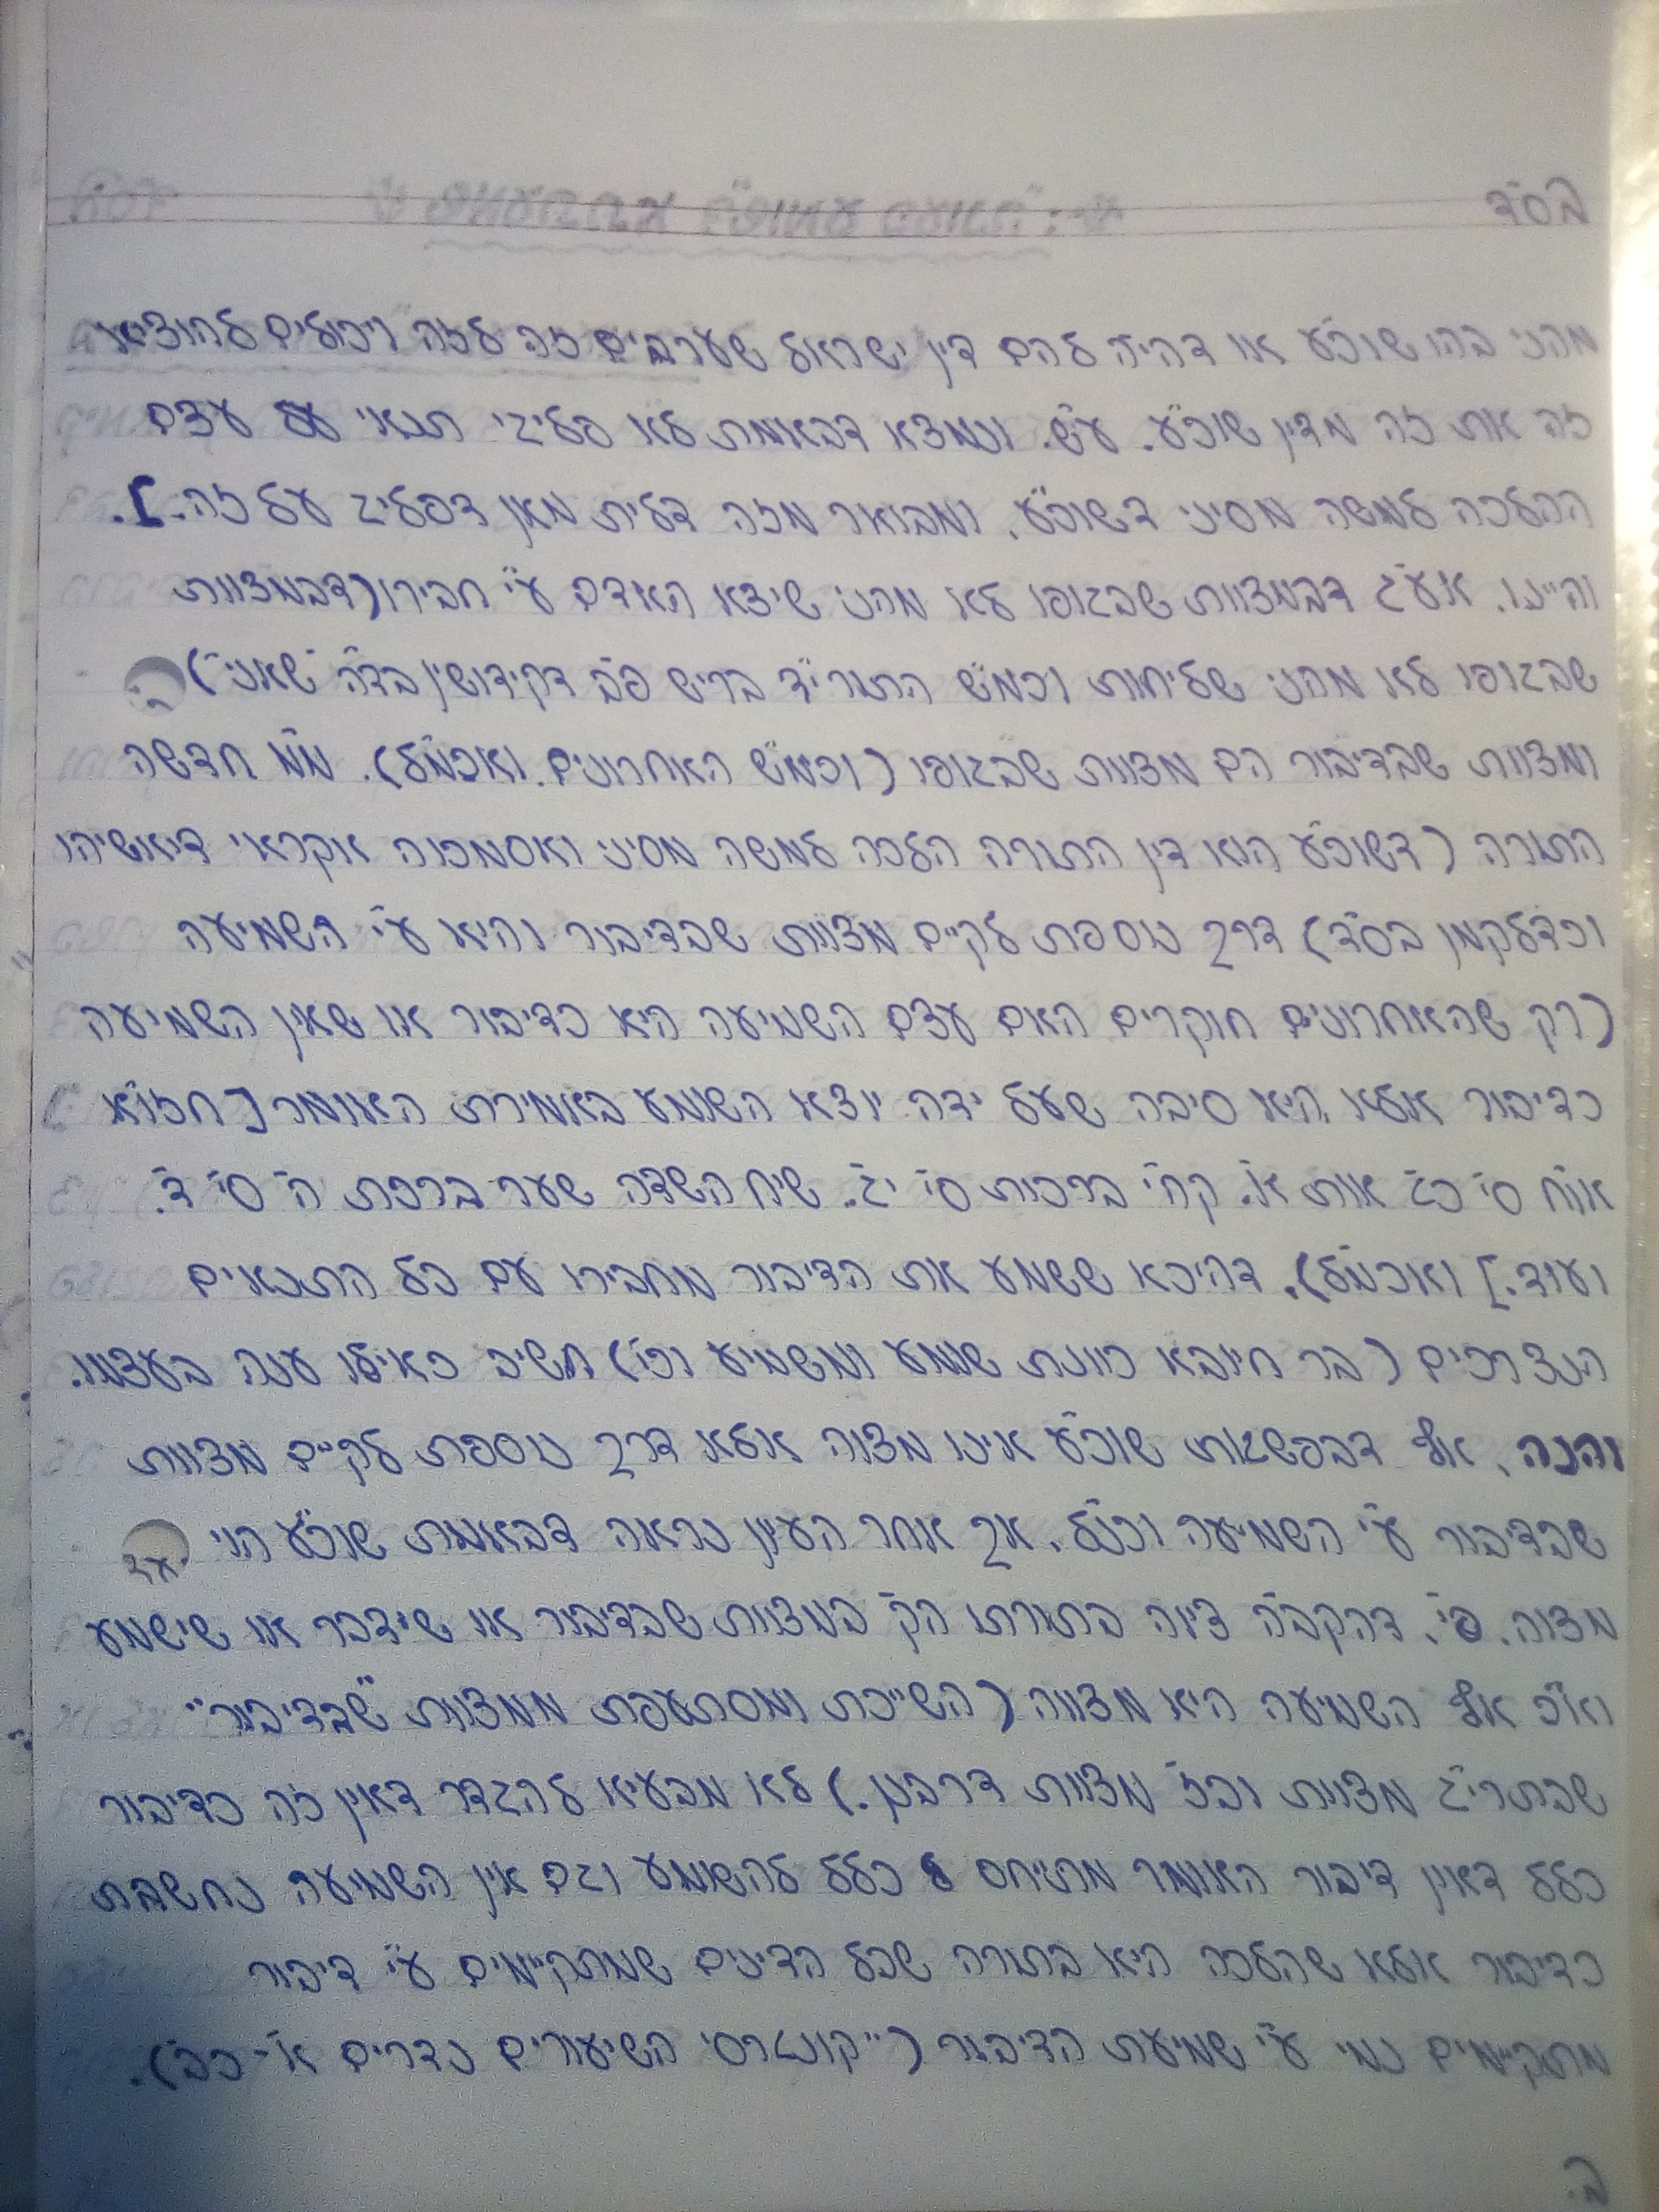 בס"ד
מהני בהו שוכ"ע או דהי' להם דין ישראל שערבים זה לזה ויכולים להוציא
זה את זה מדין שוכ"ע. עי"ש. ונמצא דבאמת לא פליגי תנאי על עצם
ההלכה למשה מסיני דשוכ"ע, ומבואר מזה דלית מאן דפליג על זה.].
והיינו, אע"ג דבמצוות שבגופו לא מהני שיצא האדם ע"י חבירו (דבמצוות
שבגופו לא מהני שליחות וכמ"ש התורי"ד בריש פ"ב דקידושין בד"ה "שאני")
ומצוות שבדיבור הם מצוות שבגופו (וכמ"ש האחרונים. ואכמ"ל). מ"מ חדשה
התורה (דשוכ"ע הוא דין התורה הלכה למשה מסיני ואסמכוה אקראי דיאשיהו
וכדלקמן בס"ד) דרך נוספת לקיים מצוות שבדיבור והיא ע"י השמיעה
(רק שהאחרונים חוקרים האם עצם השמיעה היא כדיבור או שאין השמיעה
כדיבור אלא היא סיבה שעל ידה יוצא השומע באמירת האומר [חזו"א
או"ח סי' כ"ג אות א'. קה"י ברכות סי' י"ג. שיח השדה שער ברכת ה' סי' ד'.
ועוד.] ואכמ"ל). דהיכא ששמע את הדיבור מחבירו עם כל התנאים
הנצרכים (בר חיובא כוונת שומע ומשמיע וכו') חשיב כאילו ענה בעצמו.
והנה, אף דבפשטות שוכ"ע אינו מצוה אלא דרך נוספת לקיים מצוות
שבדיבור ע"י השמיעה וכנ"ל, אך אחר העיון נראה דבאמת שוכ"ע הוי
מצוה. פי', דהקב"ה ציוה בתורתו הק' במצוות שבדיבור או שידבר או שישמע
וא"כ אף השמיעה היא מצווה (השייכת ומסתעפת ממצוות "שבדיבור"
שבתרי"ג מצוות ובז' מצוות דרבנן.) לא מבעיא להגדר דאין זה כדיבור
כלל דאין דיבור האומר מתייחס כלל להשומע וגם אין השמיעה נחשבת
כדיבור אלא שהלכה היא בתורה שכל הדינים שמתקיימים ע"י דיבור
מתקיימים נמי ע"י שמיעת הדיבור ("קונטרסי השיעורים נדרים א'- כ"ב).
ב.